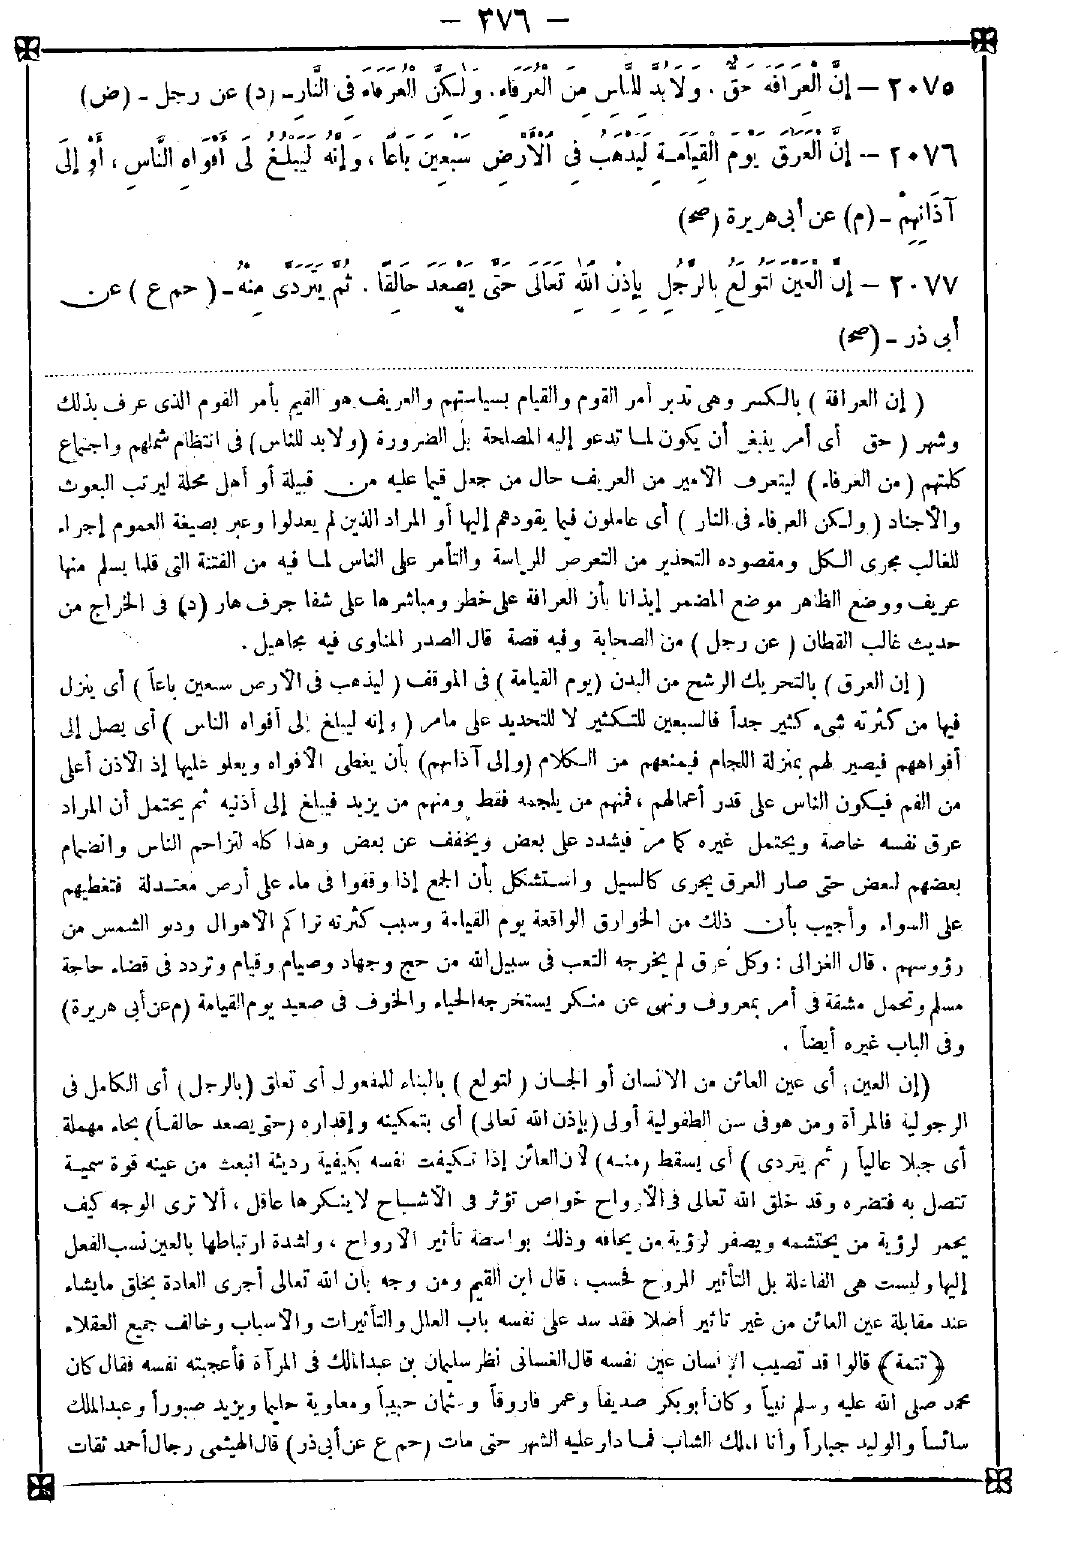 — ٣٧٦ —
٢٠٧٥ – إِنَّ الْعِرَافَةَ حَقٌّ . وَلَابُدَّ لِلنَّاسِ مِنَ الْعُرَفَاءِ. وَلٰكِنَّ الْعُرَفَاءَ فِي النَّارِ – (د) عن رجل – (ض)
٢٠٧٦ – إِنَّ الْعَرَقَ يَوْمَ الْقِيَامَةِ لَيَذْهَبُ فِي الْأَرْضِ سَبْعِينَ بَاعًا ، وَإِنَّهُ لَيَبْلُغُ إِلَى أَفْوَاهِ النَّاسِ ، أَوْ إِلَى
آذَانِهِمْ – (م) عن أبى هريرة (صح)
٢٠٧٧ – إِنَّ الْعَيْنَ لَتُولَعُ بِالرَّجُلِ بِإِذْنِ اللهِ تَعَالَى حَتَّى يَصْعَدَ حَالِقًا . ثُمَّ يَتَرَدَّى مِنْهُ – ( حم ع ) عن
أبى ذر – (صح)
( إن العرافة ) بالكسر وهى تدبر أمر القوم والقيام بسياستهم والعريف هو القيم بأمر القوم الذى عرف بذلك
وشهر ( حق أى أمر ينبغى أن يكون لما تدعو إليه المصلحة بل الضرورة (ولابد للناس) فى انتظام شملهم واجتماع
كلمتهم ( من العرفاء ) ليتعرف الأمير من العريف حال من جعل قيما عليه من قبيلة أو أهل محلة ليرتب البعوث
والأجناد ( ولكن العرفاء فى النار ) أى عاملون فيما يقودهم إليها أو المراد الذين لم يعدلوا وعبر بصيغة العموم إجراء
للغالب مجرى الكل ومقصوده التحذير من التعرض للرياسة والتأمر على الناس لما فيه من الفتنة التى قلما يسلم منها
عريف ووضع الظاهر موضع المضمر إيذانا بأن العرافة على خطر ومباشرها على شفا جرف هار (د) فى الخراج من
حديث غالب القطان ( عن رجل ) من الصحابة وفيه قصة قال الصدر المناوى فيه مجاهيل .
( إن العرق ) بالتحريك الرشح من البدن (يوم القيامة ) فى الموقف ( ليذهب فى الأرض سبعين باعاً ) أى ينزل
فيها من كثرته شىء كثير جداً فالسبعين للتكثير لا للتحديد على مامر ( وإنه ليبلغ إلى أفواه الناس ) أى يصل إلى
أفواههم فيصير لهم بمنزلة اللجام فيمنعهم من الكلام (وإلى آذانهم) بأن يغطى الأفواه ويعلو عليها إذ الأذن أعلى
من الفم فيكون الناس على قدر أعمالهم ، فمنهم من يلجمه فقط ومنهم من يزيد فيبلغ إلى أذنيه ثم يحتمل أن المراد
عرق نفسه خاصة ويحتمل غيره كما مرّ فيشدد على بعض ويخفف عن بعض وهذا كله لتزاحم الناس وانضمام
بعضهم لبعض حتى صار العرق يجرى كالسيل واستشكل بأن الجمع إذا وقفوا فى ماء على أرض معتدلة فتغطيهم
على السواء وأجيب بأن ذلك من الخوارق الواقعة يوم القيامة وسبب كثرته تراكم الأهوال ودنو الشمس من
رؤوسهم . قال الغزالى : وكل عرق لم يخرجه التعب فى سبيل الله من حج وجهاد وصيام وقيام وتردد فى قضاء حاجة
مسلم وتحمل مشقة فى أمر بمعروف ونهى عن منكر يستخرجه الحياء والخوف فى صعيد يوم القيامة (م عن أبى هريرة)
وفى الباب غيره أيضاً .
(إن العين) أى عين العائن من الانسان أو الجان ( لتولع ) بالبناء للمفعول أى تعلق (بالرجل) أى الكامل فى
الرجولية فالمرأة ومن هو فى سن الطفولية أولى (بإذن الله تعالى) أى بتمكينه وإقداره (حتى يصعد حالقاً) بحاء مهملة
أى جبلا عالياً ( ثم يتردى ) أى يسقط (منه) لأن العائن إذا تكيفت نفسه بكيفية رديئة انبعث من عينه قوة سمية
تتصل به فتضره وقد خلق الله تعالى فى الأرواح خواص تؤثر فى الأشباح لاينكرها عاقل ، ألا ترى الوجه كيف
يحمر لرؤية من يحتشمه ويصفر لرؤية من يخافه وذلك بواسطة تأثير الأرواح ، ولشدة ارتباطها بالعين نسب الفعل
إليها وليست هى الفاعلة بل التأثير للروح فحسب ، قال ابن القيم ومن وجه بأن الله تعالى أجرى العادة بخلق مايشاء
عند مقابلة عين العائن من غير تأثير أصلا فقد سد على نفسه باب العلل والتأثيرات والأسباب وخالف جميع العقلاء
﴿ تتمة ﴾ قالوا قد تصيب الإنسان عين نفسه قال الغسانى نظر سليمان بن عبدالملك فى المرآة فأعجبته نفسه فقال كان
محمد صلى الله عليه وسلم نبياً وكان أبوبكر صديقاً وعمر فاروقاً وعثمان حيياً ومعاوية حليما ويزيد صبوراً وعبدالملك
سائساً والوليد جباراً وأنا الملك الشاب فما دار عليه الشهر حتى مات (حم ع عن أبى ذر) قال الهيثمى رجال أحمد ثقات